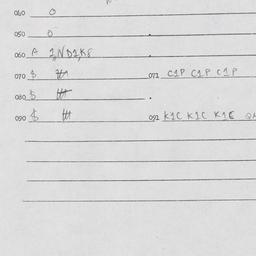 040 0
050 0
060 A 2,ND2,K8
070 $ 071 C1P C1P C1P
080 $
090 $ 091 K1C K1C K1C